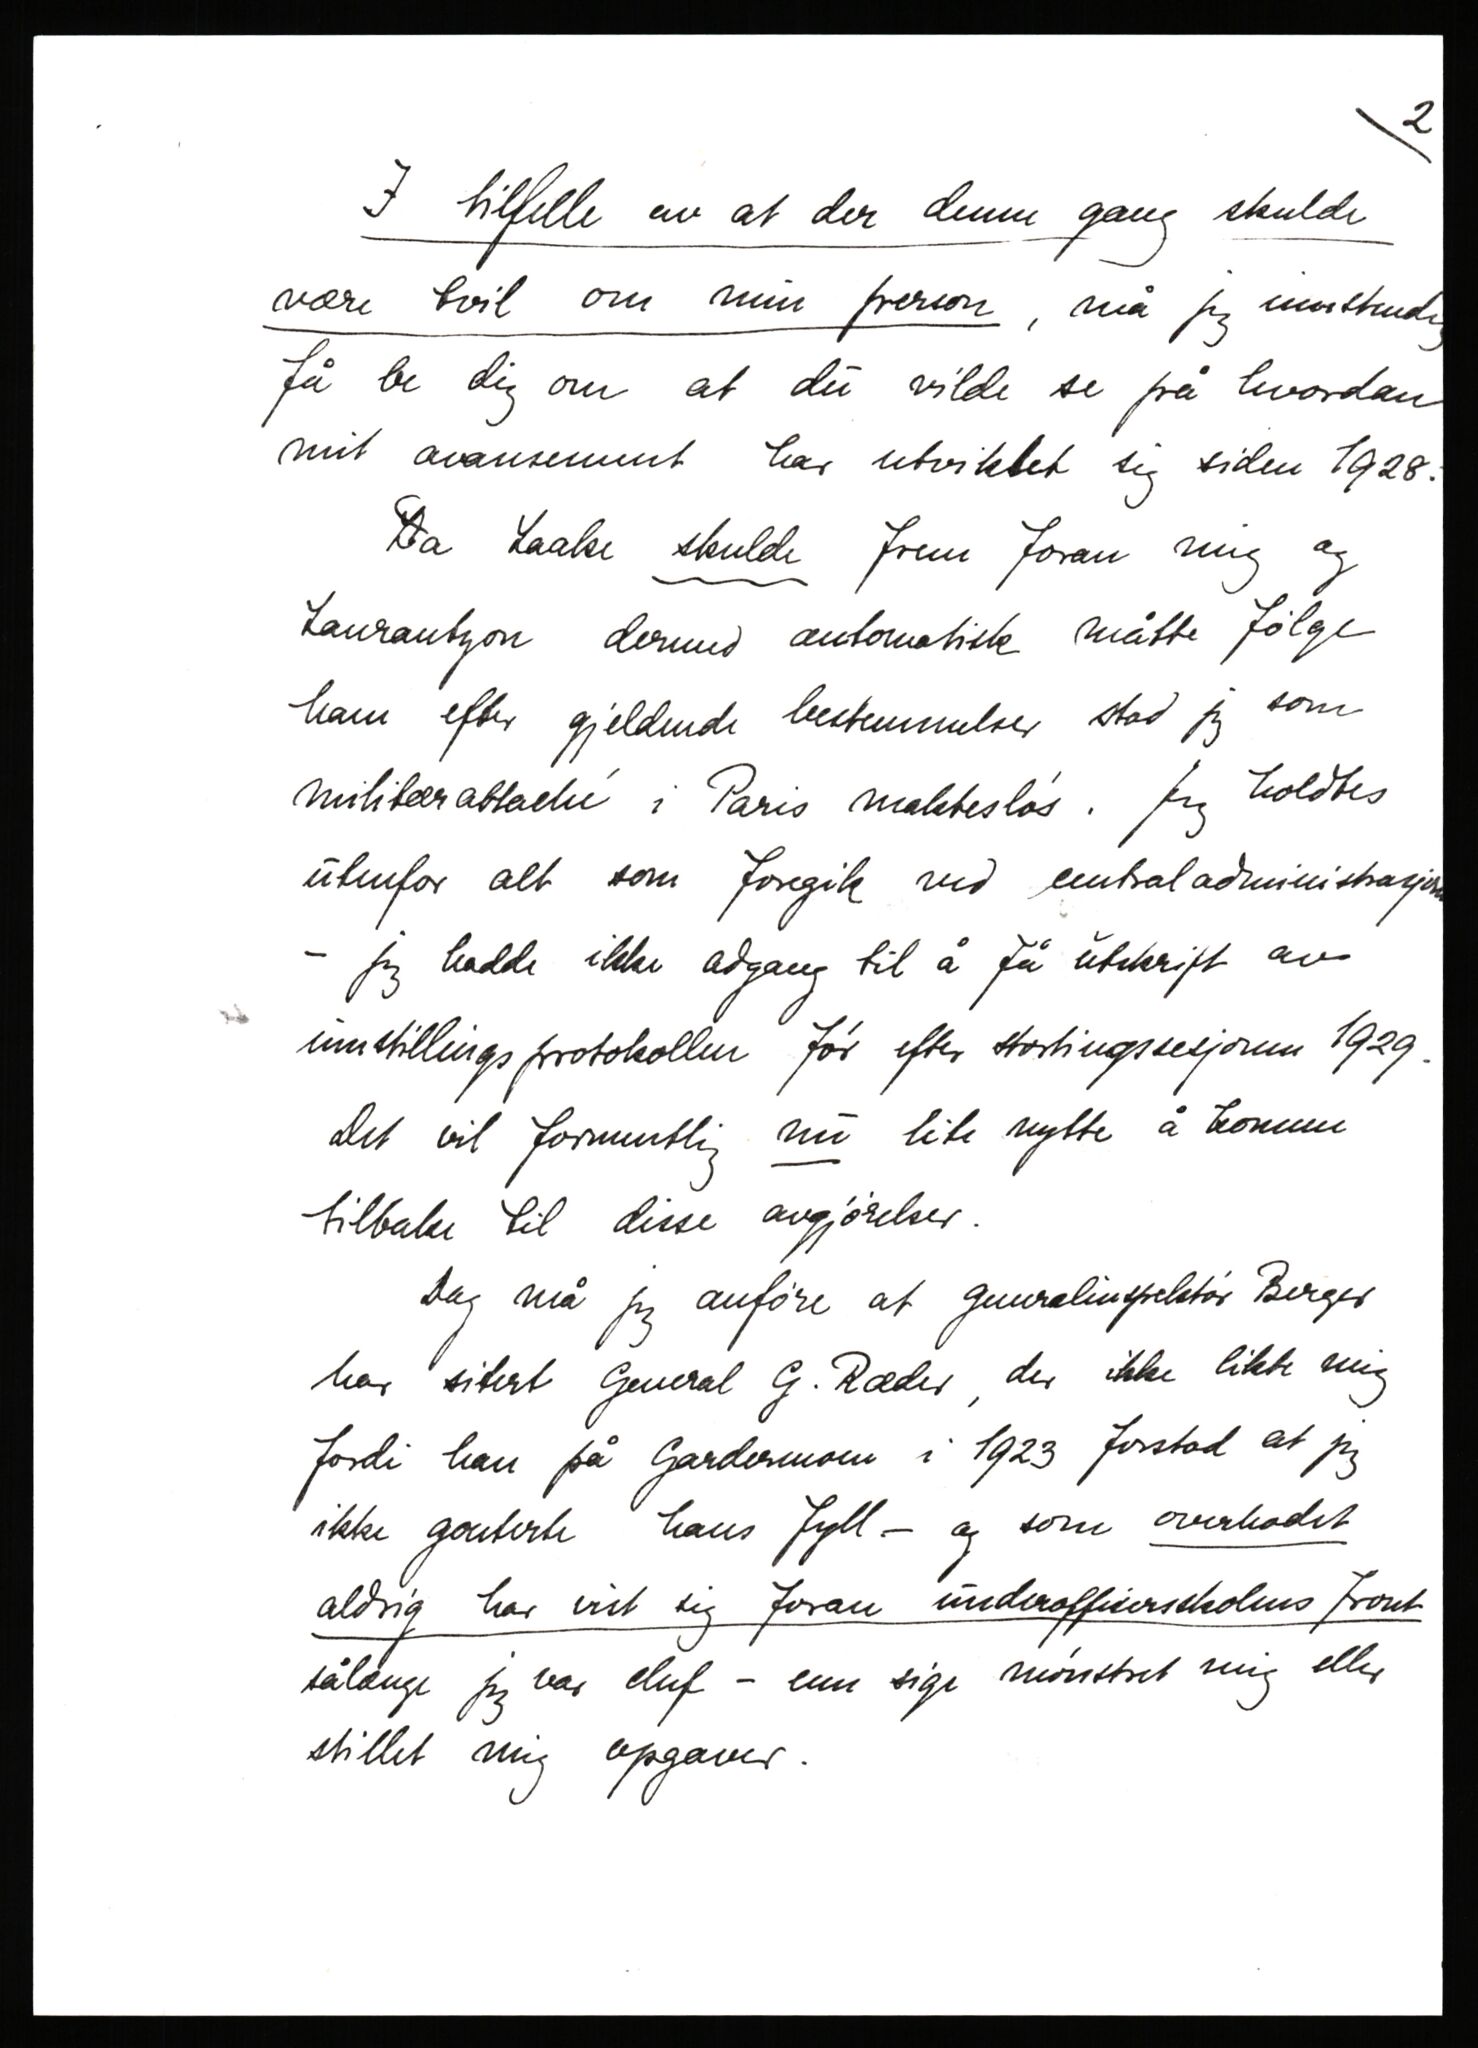 2
I tilfelle av at der denne gang skulde
være tvil om min person, må jeg innstendig
få be dig om at du vilde se på hvordan
mit avansement har utviklet sig siden 1928.
Da Laake skulde frem foran mig og
Laurantzon dermed automatisk måtte følge
ham efter gjeldende bestemmelser stod jeg som
militærattaché i Paris maktesløs. Jeg holdtes
utenfor alt som foregik ved centraladministrasjonen
- jeg hadde ikke adgang til å få utskrift av
innstillingsprotokollen før efter stortingssesjonen 1929.
Det vil formentlig nu lite nytte å komme
tilbake til disse avgjørelser.
Dog må jeg anføre at generalinspektør Berger
har sitert General G. Ræder, der ikke likte mig
fordi han på Gardermoen i 1923 forstod at jeg
ikke gouterte hans fyll - og som overhodet
aldrig har vist sig foran underofficersskolens front
sålænge jeg var chef - enn sige mønstret mig eller
stillet mig opgaver.